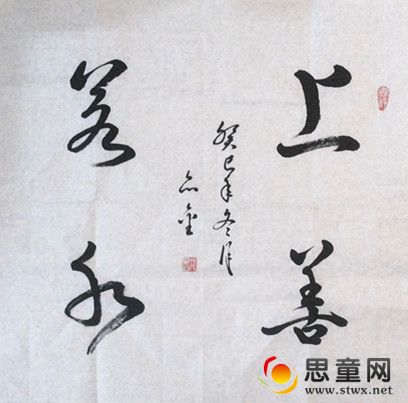 上善
若水
癸巳年冬月
思童网
www.stwx.net